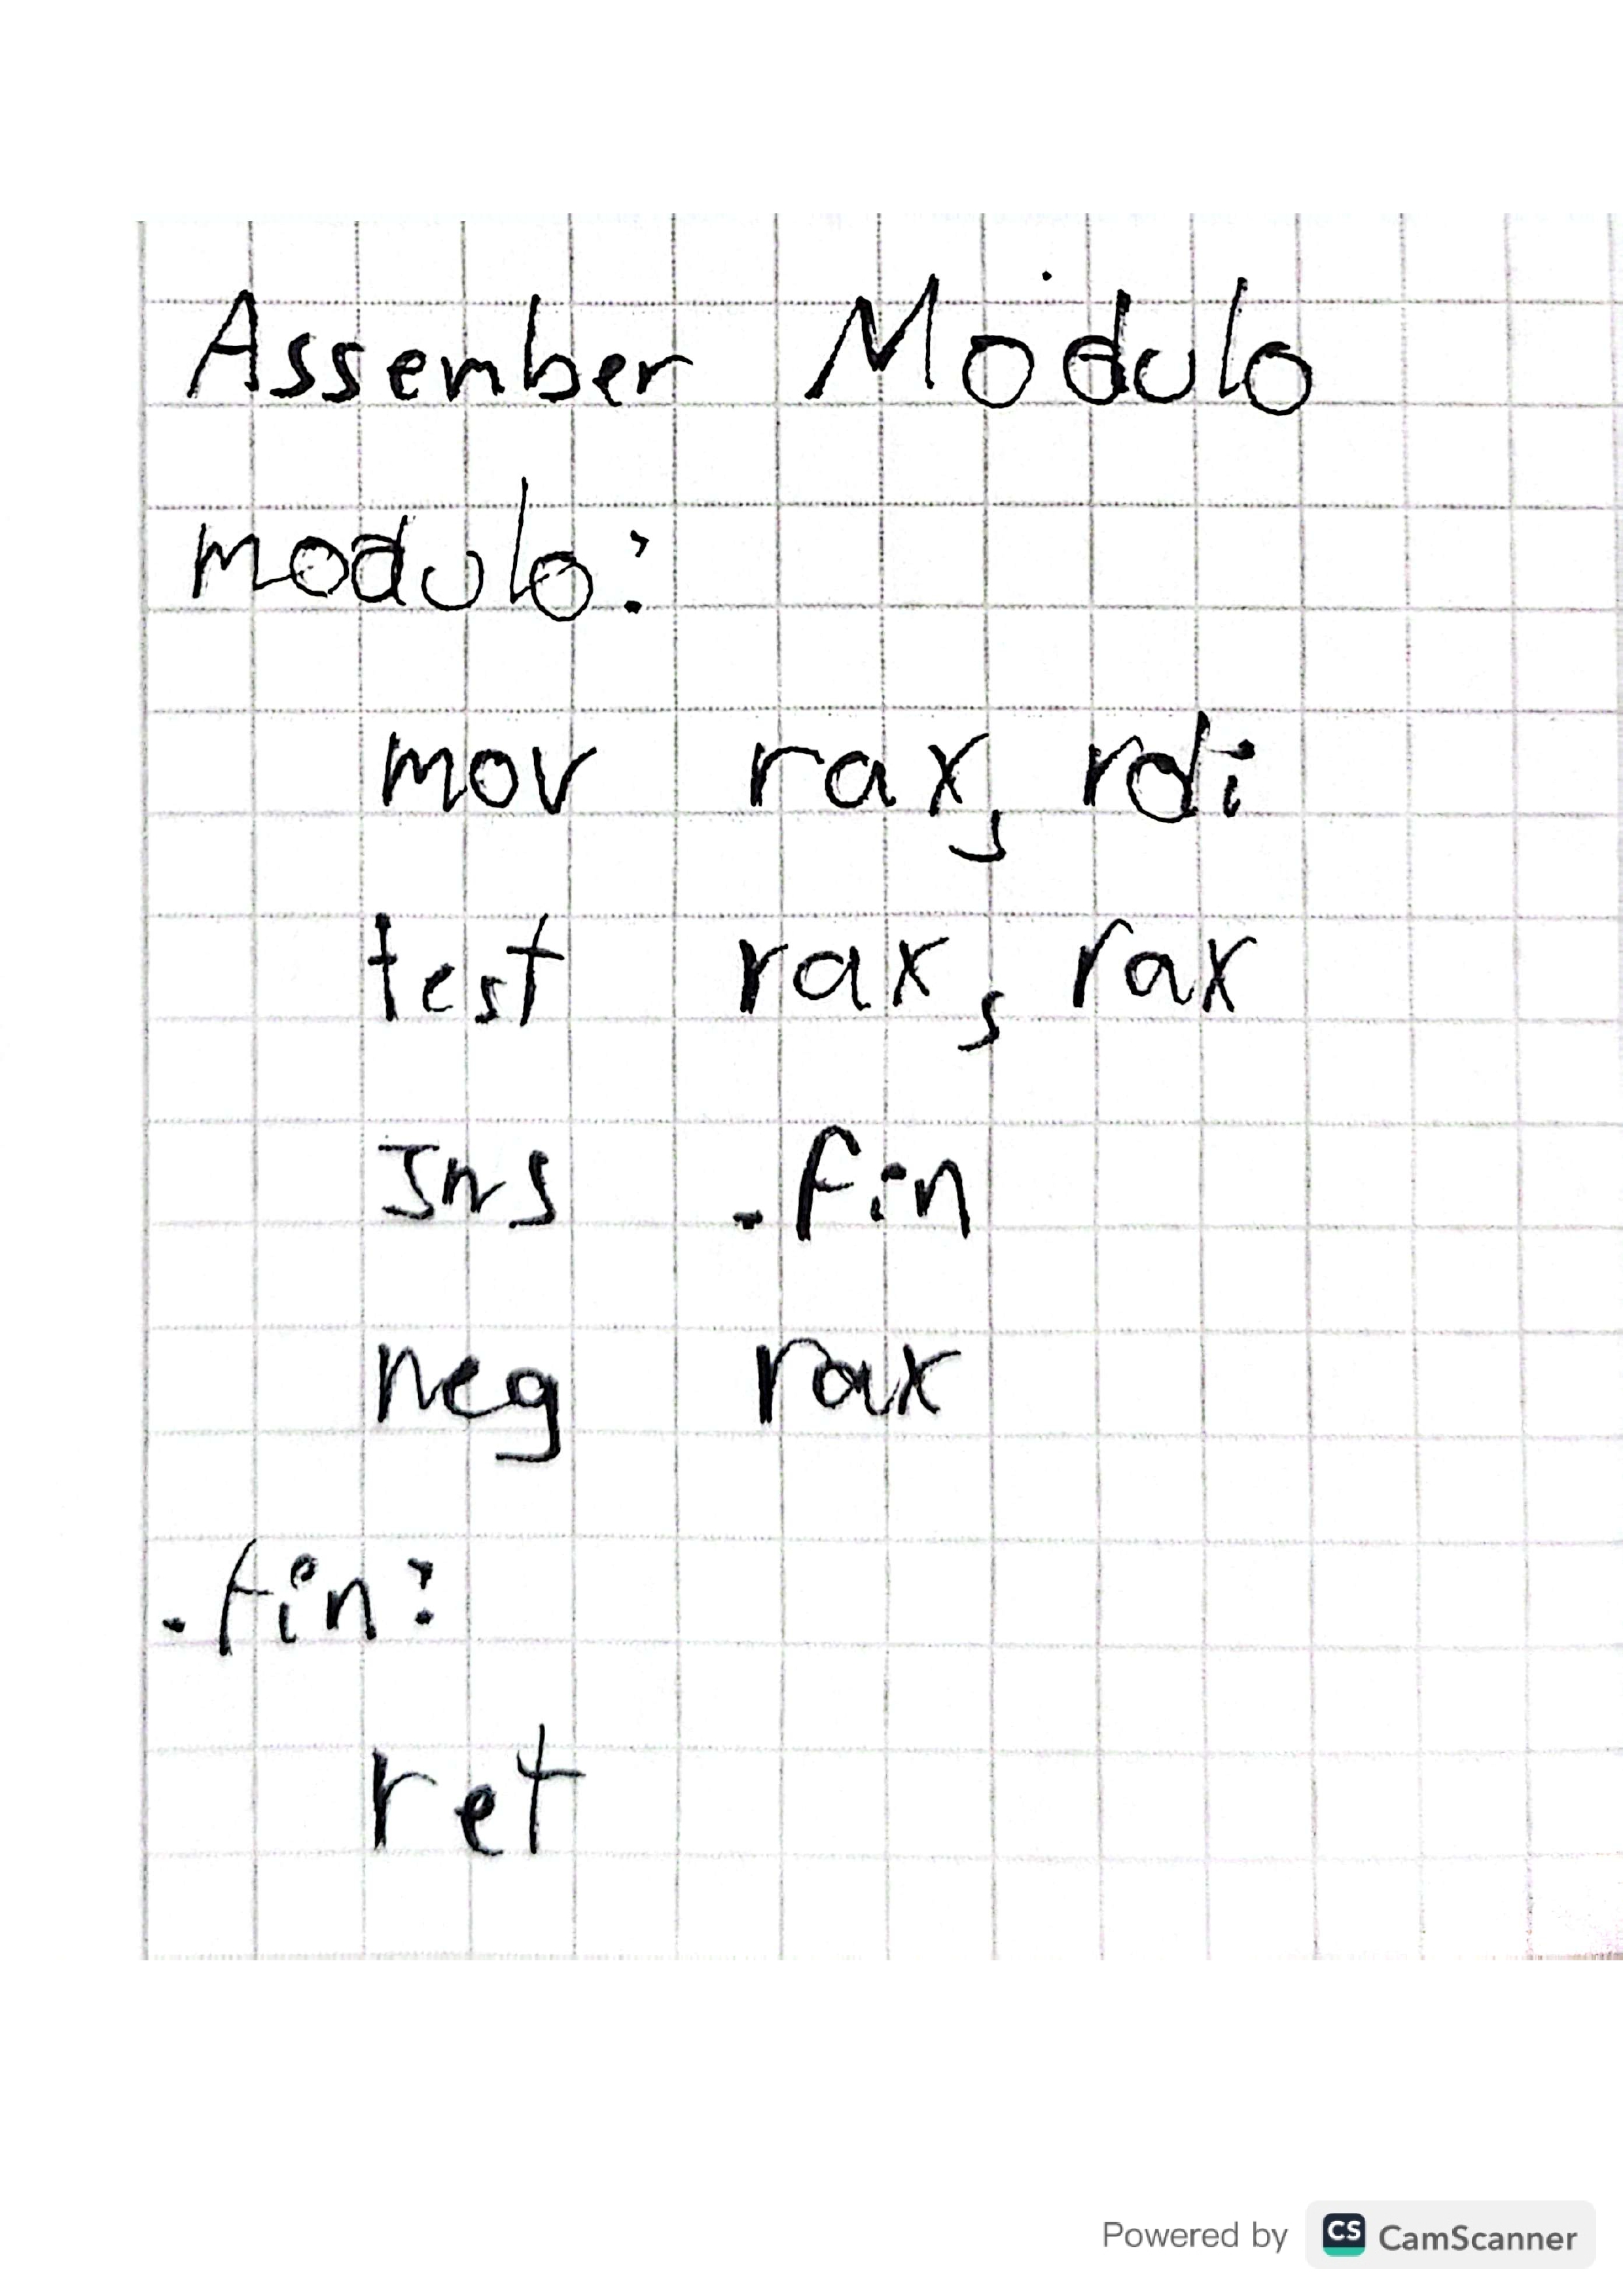 Assember Modulo
modulo:
mov rax, rdi
test rax, rax
jns .fin
neg rax
.fin:
ret
Powered by CS CamScanner